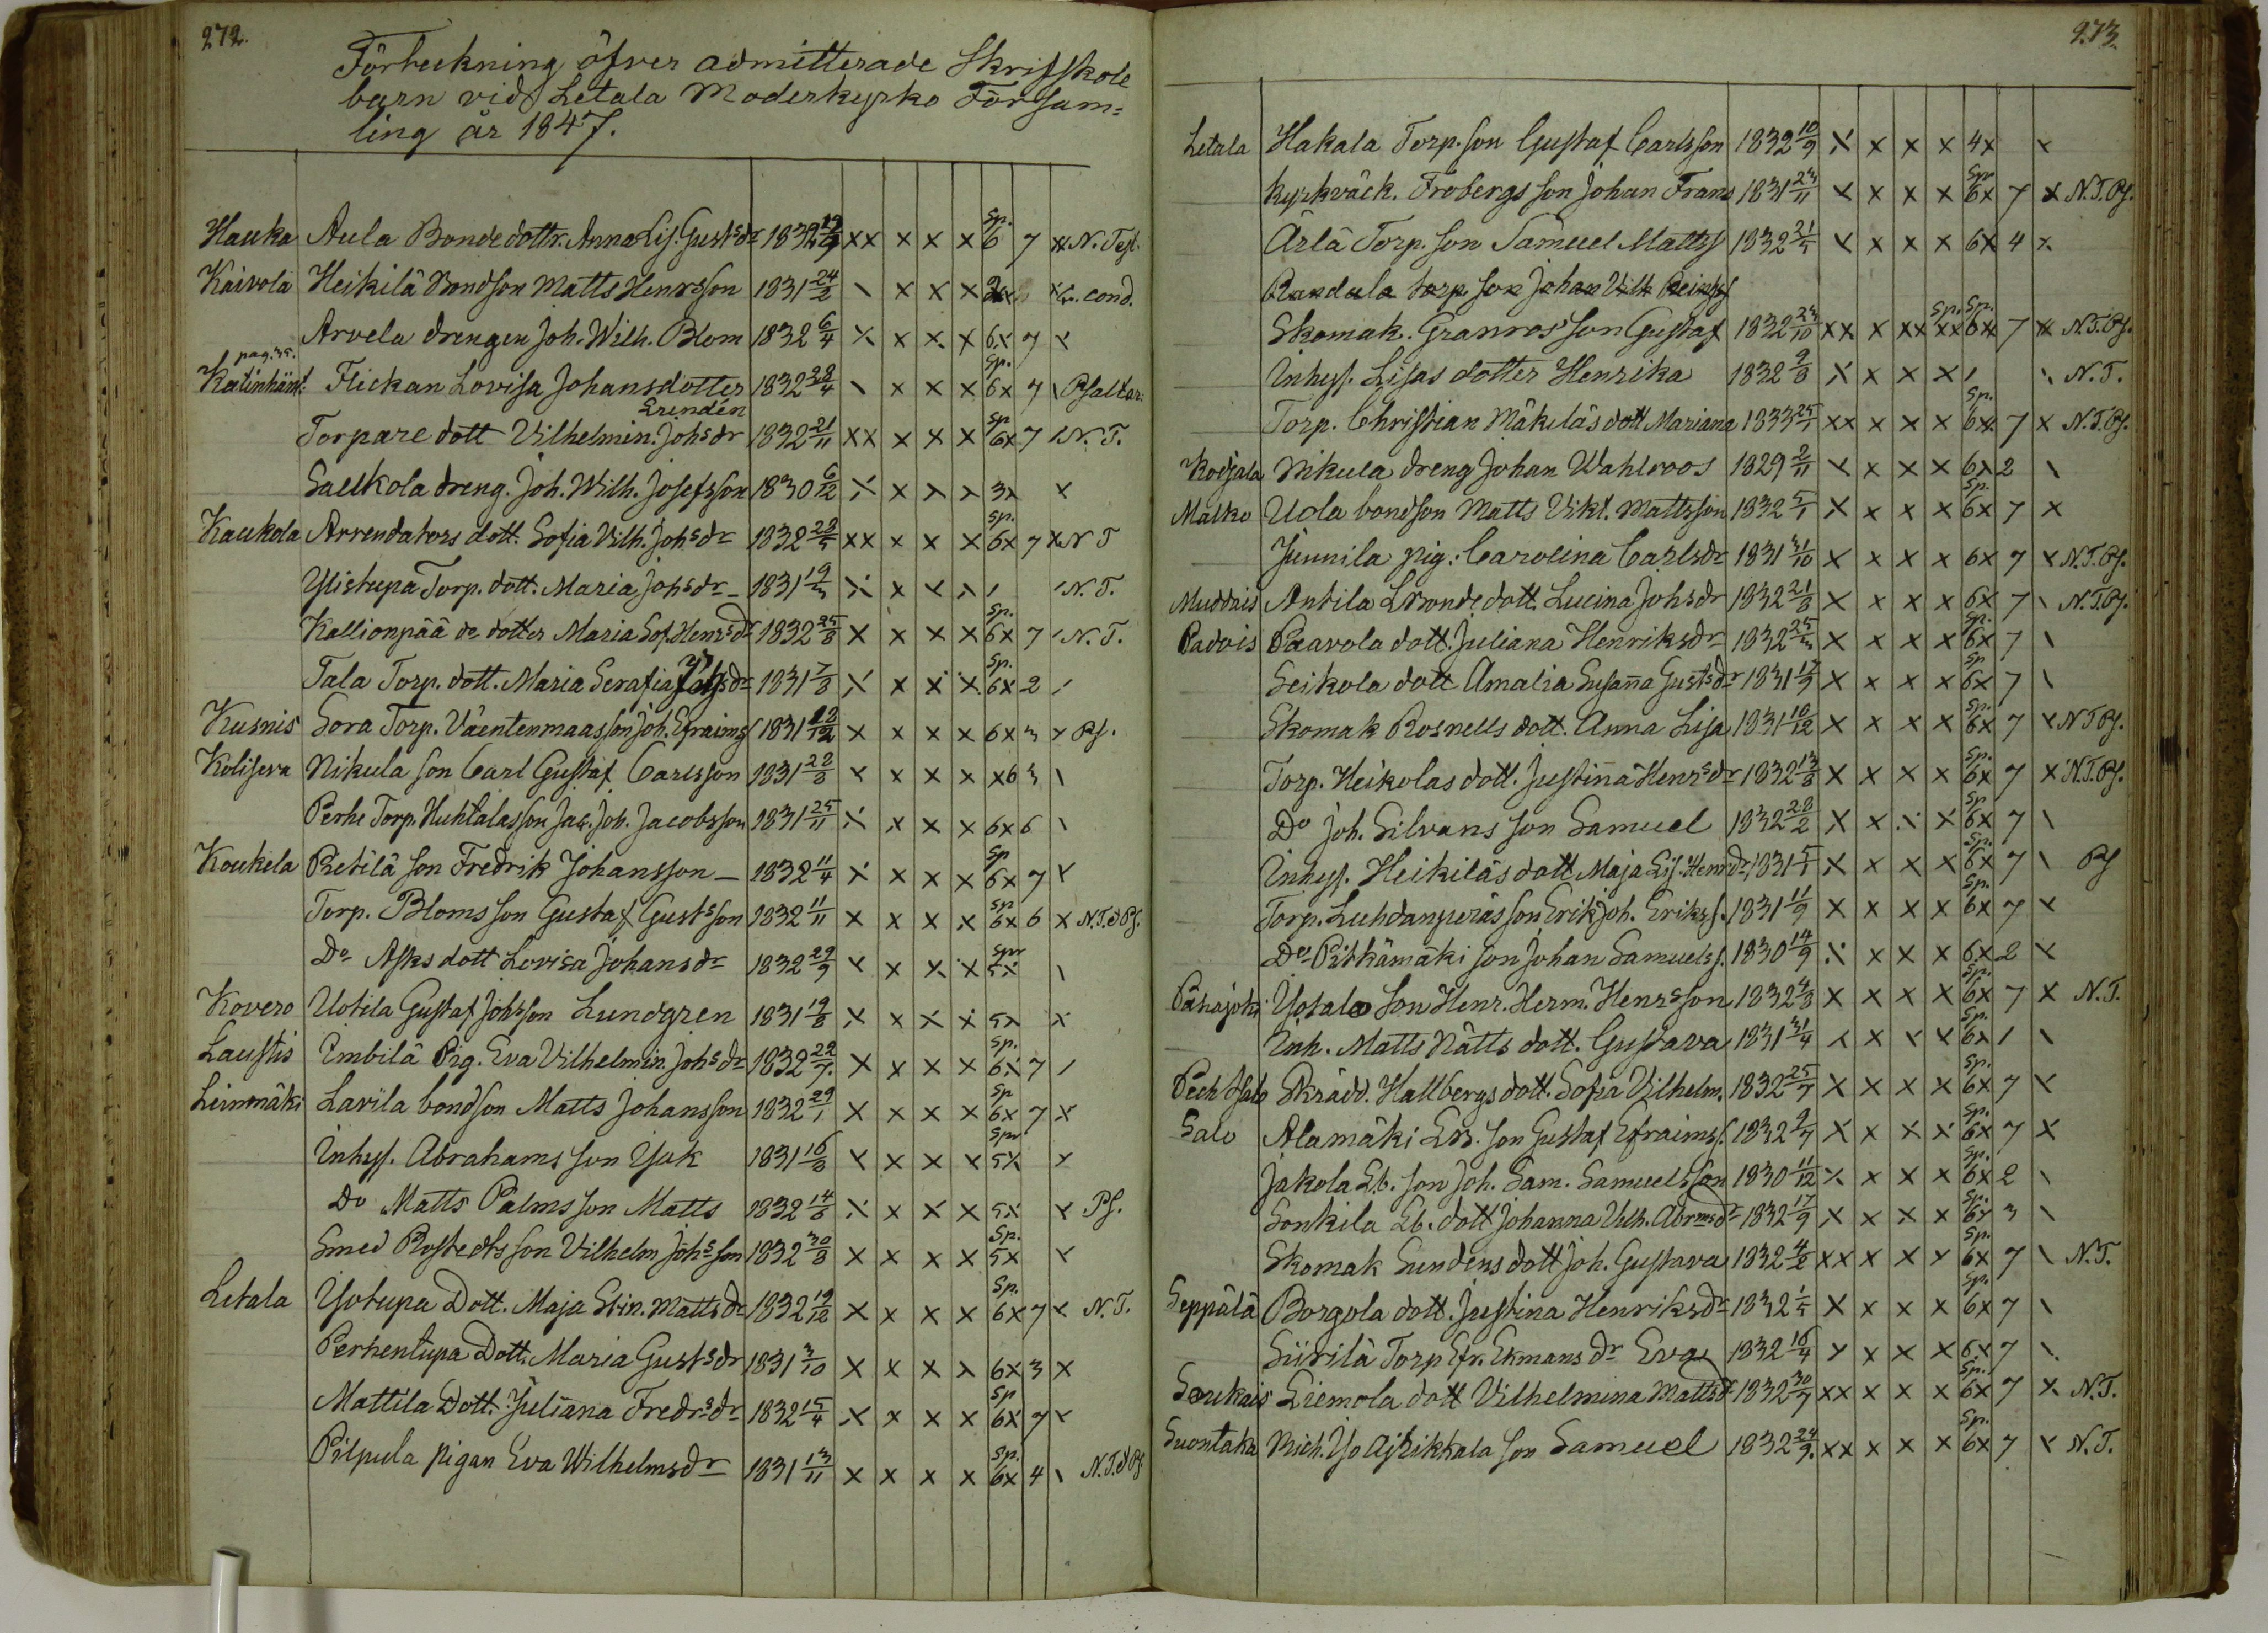 272.
Förteckning öfver admitterade Skriftskole
barn vid Letala Moderkyrko Försam=
ling år 1847.
Hauka Aula Bonde dottr. Anna Lis. Gustsdr 1832 19/9 xx x x x Sp. 6 7 x N. Test.
Kaivola Heikilä Bondson Matts Henrsson 1831 24/2 \ x x x x cond.
Arvela drengen Joh. Wilh. Blom 1832 6/4 x x x x 6x 7 x
pag. 35.
Katinhänt. Flickan Lovisa Johansdotter 1832 28/4 \ x x x Sp. 6x 7 \ Psaltar.
Grundén
Torpare dott Vilhelmin. Johsdr 1832 21/11 xx x x x Sp 6x 7 / N. T.
Saukola dreng. Joh. Wilh. Josefsson 1830 6/12 x x x x 3x x
Kaukola Arrendators dott. Sofia Vilh. Johsdr 1832 28/5 xx x x x Sp. 6x 7 x N T
Ylistupa Torp. dott. Maria Johsdr 1831 19/3 x x x x / / N. T.
Kallionpää do dotter Maria Sof. Henrsdr 1832 25/8 x x x x Sp. 6x 7 / N. T.
Tala Torp. dott. Maria Serafia 1831 7/8 x x x x Sp. 6x 2 /
Kusnis Sora Torp. Väentenmaas son Joh. Efraims 1831 12/12 x x x x 6x 3 x Ps.
Koliseva Nikula son Carl Gustaf Carlsson 1831 28/8 x x x x x6 3 \
Perhe Torp. Huhtalas son Jac. Joh. Jacobsson 1831 25/11 x x x x 6x 6 \
Koukela Retilä son Fredrik Johansson 1832 11/4 x x x x Sp 6x 7 x
Torp. Bloms son Gustaf Gustsson 1832 11/11 x x x x Sp 6x 6 x N. T. d Ps.
Do Asks dott Lovisa Johansdr 1832 29/9 x x x x Spr 5x \
Kovero Uotila Gustaf Johsson Lundgren 1831 19/8 x x x x 5x x
Laustis Embilä Pig. Eva Vilhelmin. Johsdr 1832 22/7 x x x x Sp. 6x 7 /
Leinmäki Lavila bondson Matts Johansson 1832 29/1 x x x x Sp 6x 7 x
Inhys. Abrahams son Isak 1831 16/8 x x x x Spr 5x x
Do Matts Palms son Matts 1832 14/8 x x x x 5x x Ps.
Smed Rostedts son Vilhelm Johsson 1832 30/8 x x x x Sp. 5x x
Letala Yotupa Dott. Maja Stin. Mattsdr 1832 19/12 x x x x Sp. 6x 7 x N. T.
Perhentupa Dott. Maria Gustsdr 1831 3/10 x x x x 6x 3 x
Mattila Dott. Juliana Fredrsdr 1832 15/4 x x x x Sp 6x 7 x
Pilpula pigan Eva Wilhelmsdr 1831 13/11 x x x x Sp. 6x 4 \ N. T. d Ps
273.
Letala Hakala Torp. son Gustaf Carlsson 1832 10/9 x x x x 4x x
Kyrkväck. Frobergs son Johan Frans 1831 23/11 x x x x Spr 6x 7 x N. T. Ps.
Ärlä Torp. son Samuel Matts 1832 21/5 x x x x 6x 4 x
Randala torp son Johan Vilh
Skomak. Granros son Gustaf 1832 23/10 xx x xx Sp. xx Sp. 6x 7 x N. T. Ps.
Inhys. Lisas dotter Henrika 1832 9/8 x x x x / \ N. T.
Torp. Christian Mäkiläs dott Mariana 1833 25/1 xx x x x Sp. 6x 7 x N. T. Ps.
Kodjala Nikula dreng Johan Wahlroos 1829 2/11 x x x x 6x 2 \
Malko Uola bondson Matts Vikt. Mattsson 1832 5/1 x x x x Sp. 6x 7 x
Junnila pig: Carolina Carlsdr 1831 31/10 x x x x 6x 7 x N. T. Ps.
Muddais Antila Lbonde dott. Lucina Johsdr 1832 21/8 x x x x 6x 7 \ N. T. Ps.
Padois Paavola dott. Juliana Henriksdr 1832 25/3 x x x x Sp. 6x 7 \
Seikola dott Amalia Susanna Gustsdr 1831 17/9 x x x x Sp 6x 7 \
Skomak Rosnells dott. Anna Lisa 1831 10/12 x x x x Sp. 6x 7 x N T Ps.
Torp. Heikolas dott. Justina Henrsdr 1832 13/8 x x x x Sp. 6x 7 x N. T. Ps.
Do Joh. Silvans son Samuel 1832 28/2 x x x x Sp 6x 7 \
Inhys. Heikiläs dott Maja Lis. Henrdr 1831 5/1 x x x x Sp. 6x 7 \ Ps
Torp. Luhdanperäs son Erik Joh. Eriks. 1831 11/9 x x x x Sp. 6x 7 x
Do Pitkämäki son Johan Samuelss. 1830 14/9 x x x x 6x 2 x
Pahajoki Yotalo son Henr. Herm. Henrsson 1832 4/8 x x x x Sp. 6x 7 x N. T.
Inh. Matts Nätts dott. Gustava 1831 31/4 x x x x Sp. 6x 1 \
Skrädd. Hallbergs dott. Sofia Vilhelm. 1832 25/7 x x x x Sp. 6x 7 x
Salo Alamäki Lb. son Gustaf Efraims. 1832 9/7 x x x x Sp. 6x 7 x
Jakola Lb. son Joh. Sam. Samuelsson 1830 11/12 x x x x Sp. 6x 2 \
Sonkila Lb. dott Johanna Vilh. Abrmsdr 1832 17/9 x x x x Sp. 6x 3 \
Skomak Sundens dott Joh. Gustava 1832 4/2 xx x x x Sp. 6x 7 \ N. T.
Seppälä Borgola dott. Justina Henriksdr 1832 1/5 x x x x Sp. 6x 7 \
Siirilä Torp Efr. Ekmans dr Eva 1832 16/4 x x x x 6x 7 \
Soukais Liemola dott Vilhelmina Mattsdr 1832 30/7 xx x x x Sp. 6x 7 x N. T.
Suontaka Mich. Yo Ajtikkala son Samuel 1832 24/9 xx x x x Sp. 6x 7 x N. T.